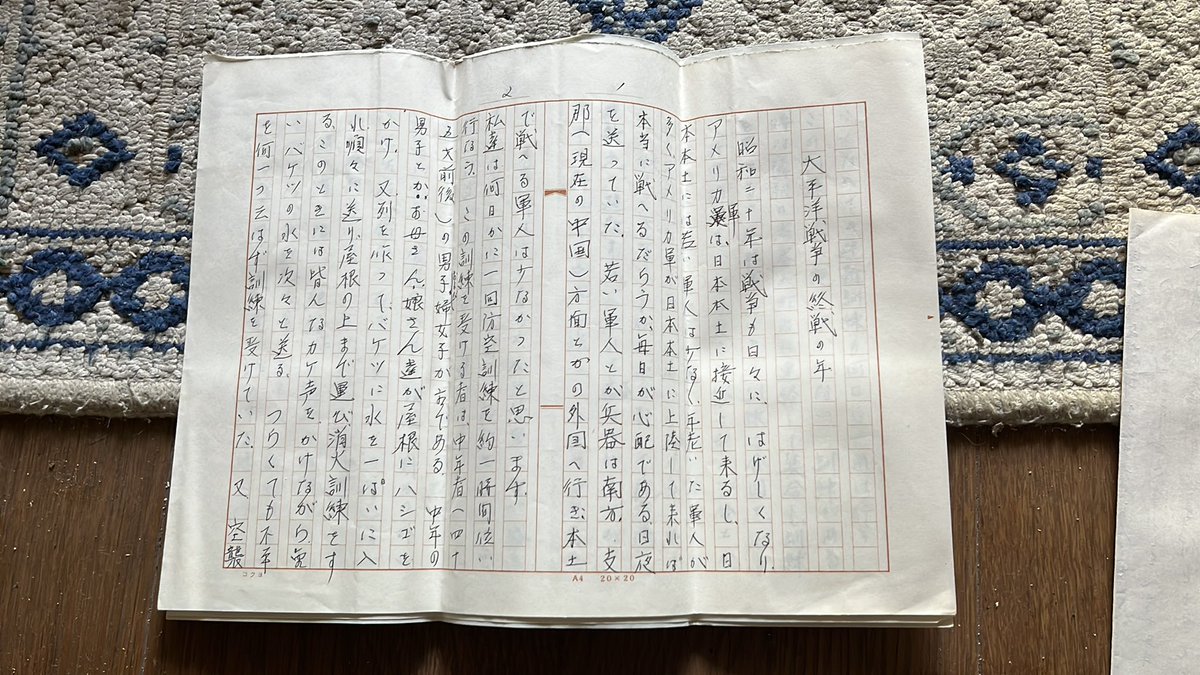 2
1
太平洋戦争の終戦の年
昭和二十年は戦争も日々に、はげしくなり
アメリカ軍は、日本本土に接近して来るし、日
本本土には若い軍人は少なく年老いた軍人が
多くアメリカ軍が日本本土に上陸して来れば
本当に戦へるだらうか、毎日が心配である日夜
を送っていた。若い軍人とか兵器は南方、支
那(現在の中国)方面とかの外国へ行き、本土
で戦へる軍人は少なかつたと思います。
私達は何日かに一回防空訓練を約一時間位い
行なう。この訓練を受ける者は、中年者(四十
五才前後)の男子、婦女子が主である。中年の
男子とか、お母さん、娘さん達が屋根にハシゴを
かけ、又列を作って、バケツに水を一ぱいに入
れ、順々に送り、屋根の上まで運び消火訓練をす
る。このときには皆んなカケ声をかけながら、重
いバケツの水を次々と送る。つらくても不平
を何一つ云はず訓練を受けていた。又 空襲
コクヨ
A4 20×20